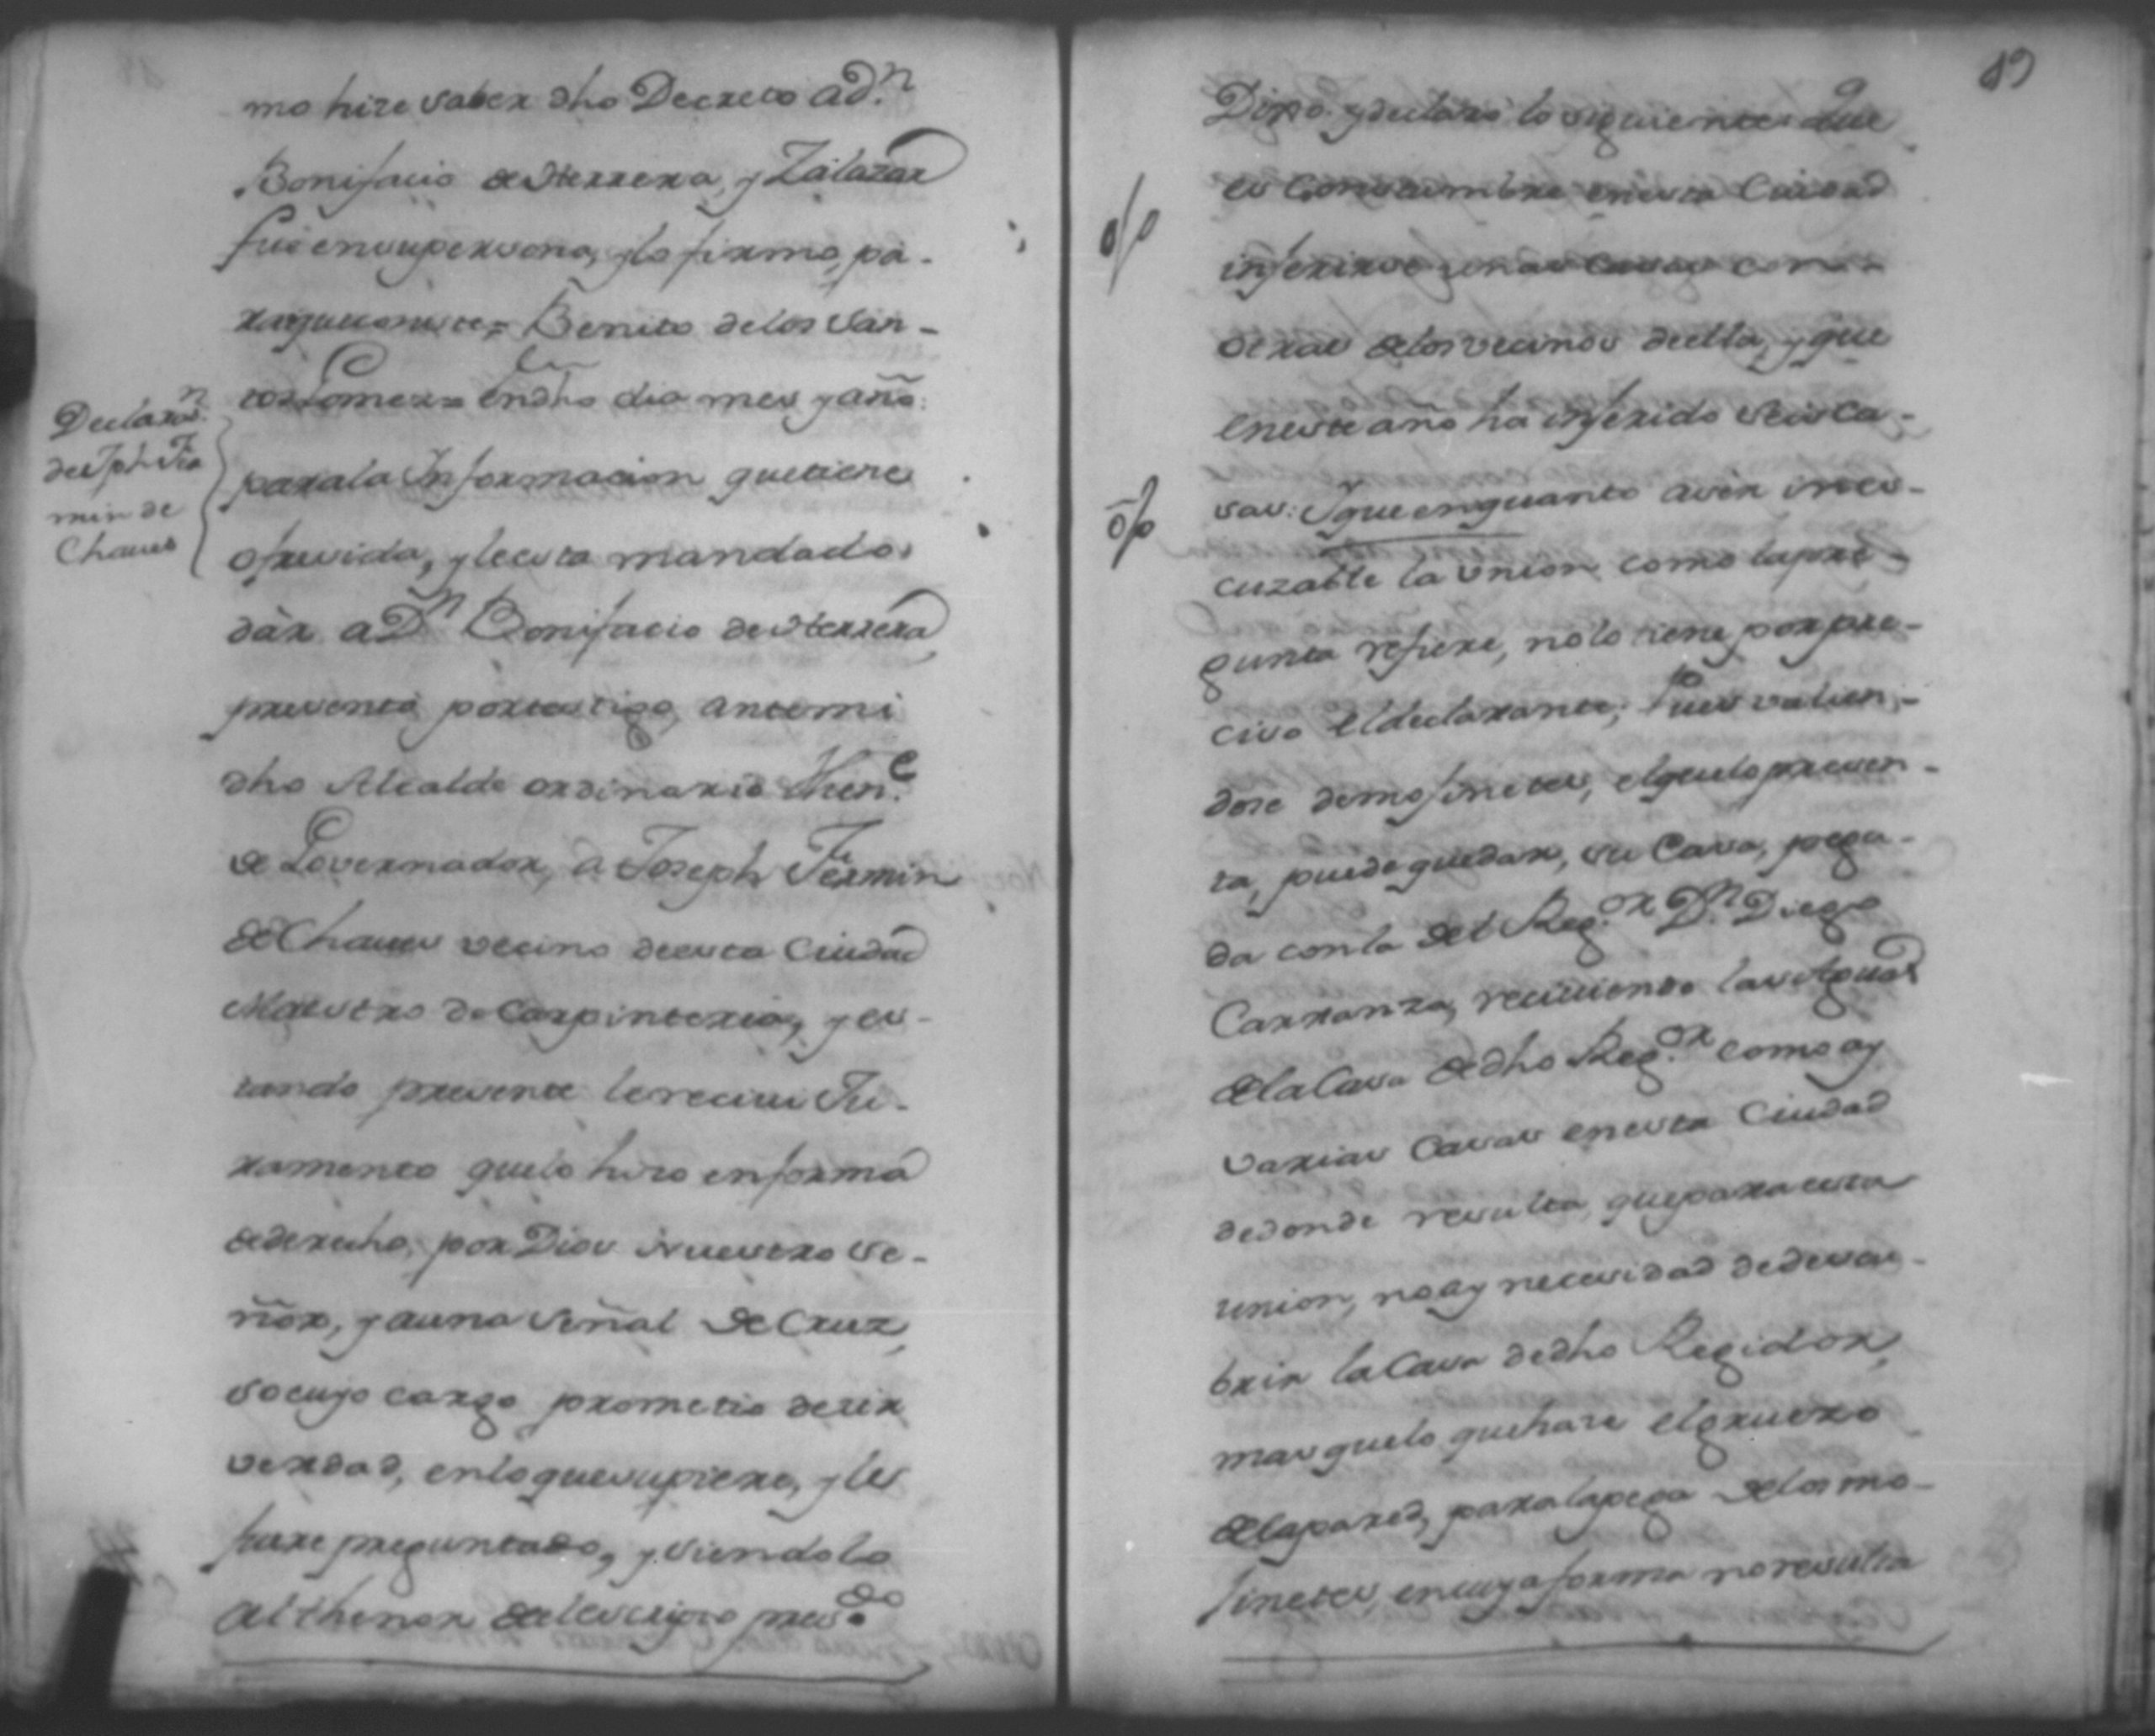 mo hize saber dho Decreto a D.n
Bonifacio de Herrera, y Zalazar
fue en su persona, y lo firmo, pa-
ra que conste = Benito de los San-
tos Gomez = En dho dia mes y año:
Declaraz.n
de Jph Fer
min de
Chaues
para la Informacion que tiene
ofresida, y le esta mandado
dàr a D.n Bonifacio de Herrera,
presentò por testigo, ante mi
dho Alcalde ordinario Then.e
de Governador, a Joseph Fermin
de Chaues vecino de esta Ciudad
Maestro de Carpinteria, y es-
tando presente le reciui Ju-
ramento que lo hizo en forma
de derecho, por Dios Nuestro Se-
ñor, y a una Señal de Cruz,
so cuyo cargo prometio dezir
verdad, en lo que supiere, y le
fuere preguntado, y siendolo
al thenor del escripto pres.do
89
Dixo y declarò lo siguiente: Que
es Constumbre en esta Ciudad
o/o
inferirse unas Casas con
otras de los vecinos de ella, y que
en este año ha inferido seis Ca-
sas: Y que en quanto a ser ines-
o/o
cuzable la union como la pre-
gunta refiere, no lo tiene por pre-
ciso el declarante; Pues valien-
dose de mojinetes, el que lo presen-
ta, puede quedar, su Casa, pega-
da con la del Reg.or D.n Diego
Carranza, reciuiendo las Aguas
de la Casa de dho Reg.or como ay
varias Casas en esta Ciudad
de donde resulta, que para esta
union, no ay necesidad de descu-
brir la Casa de dho Regidor,
mas que lo que haze el grueso
de la pared, para la pega de los mo-
jinetes, en cuya forma no resulta